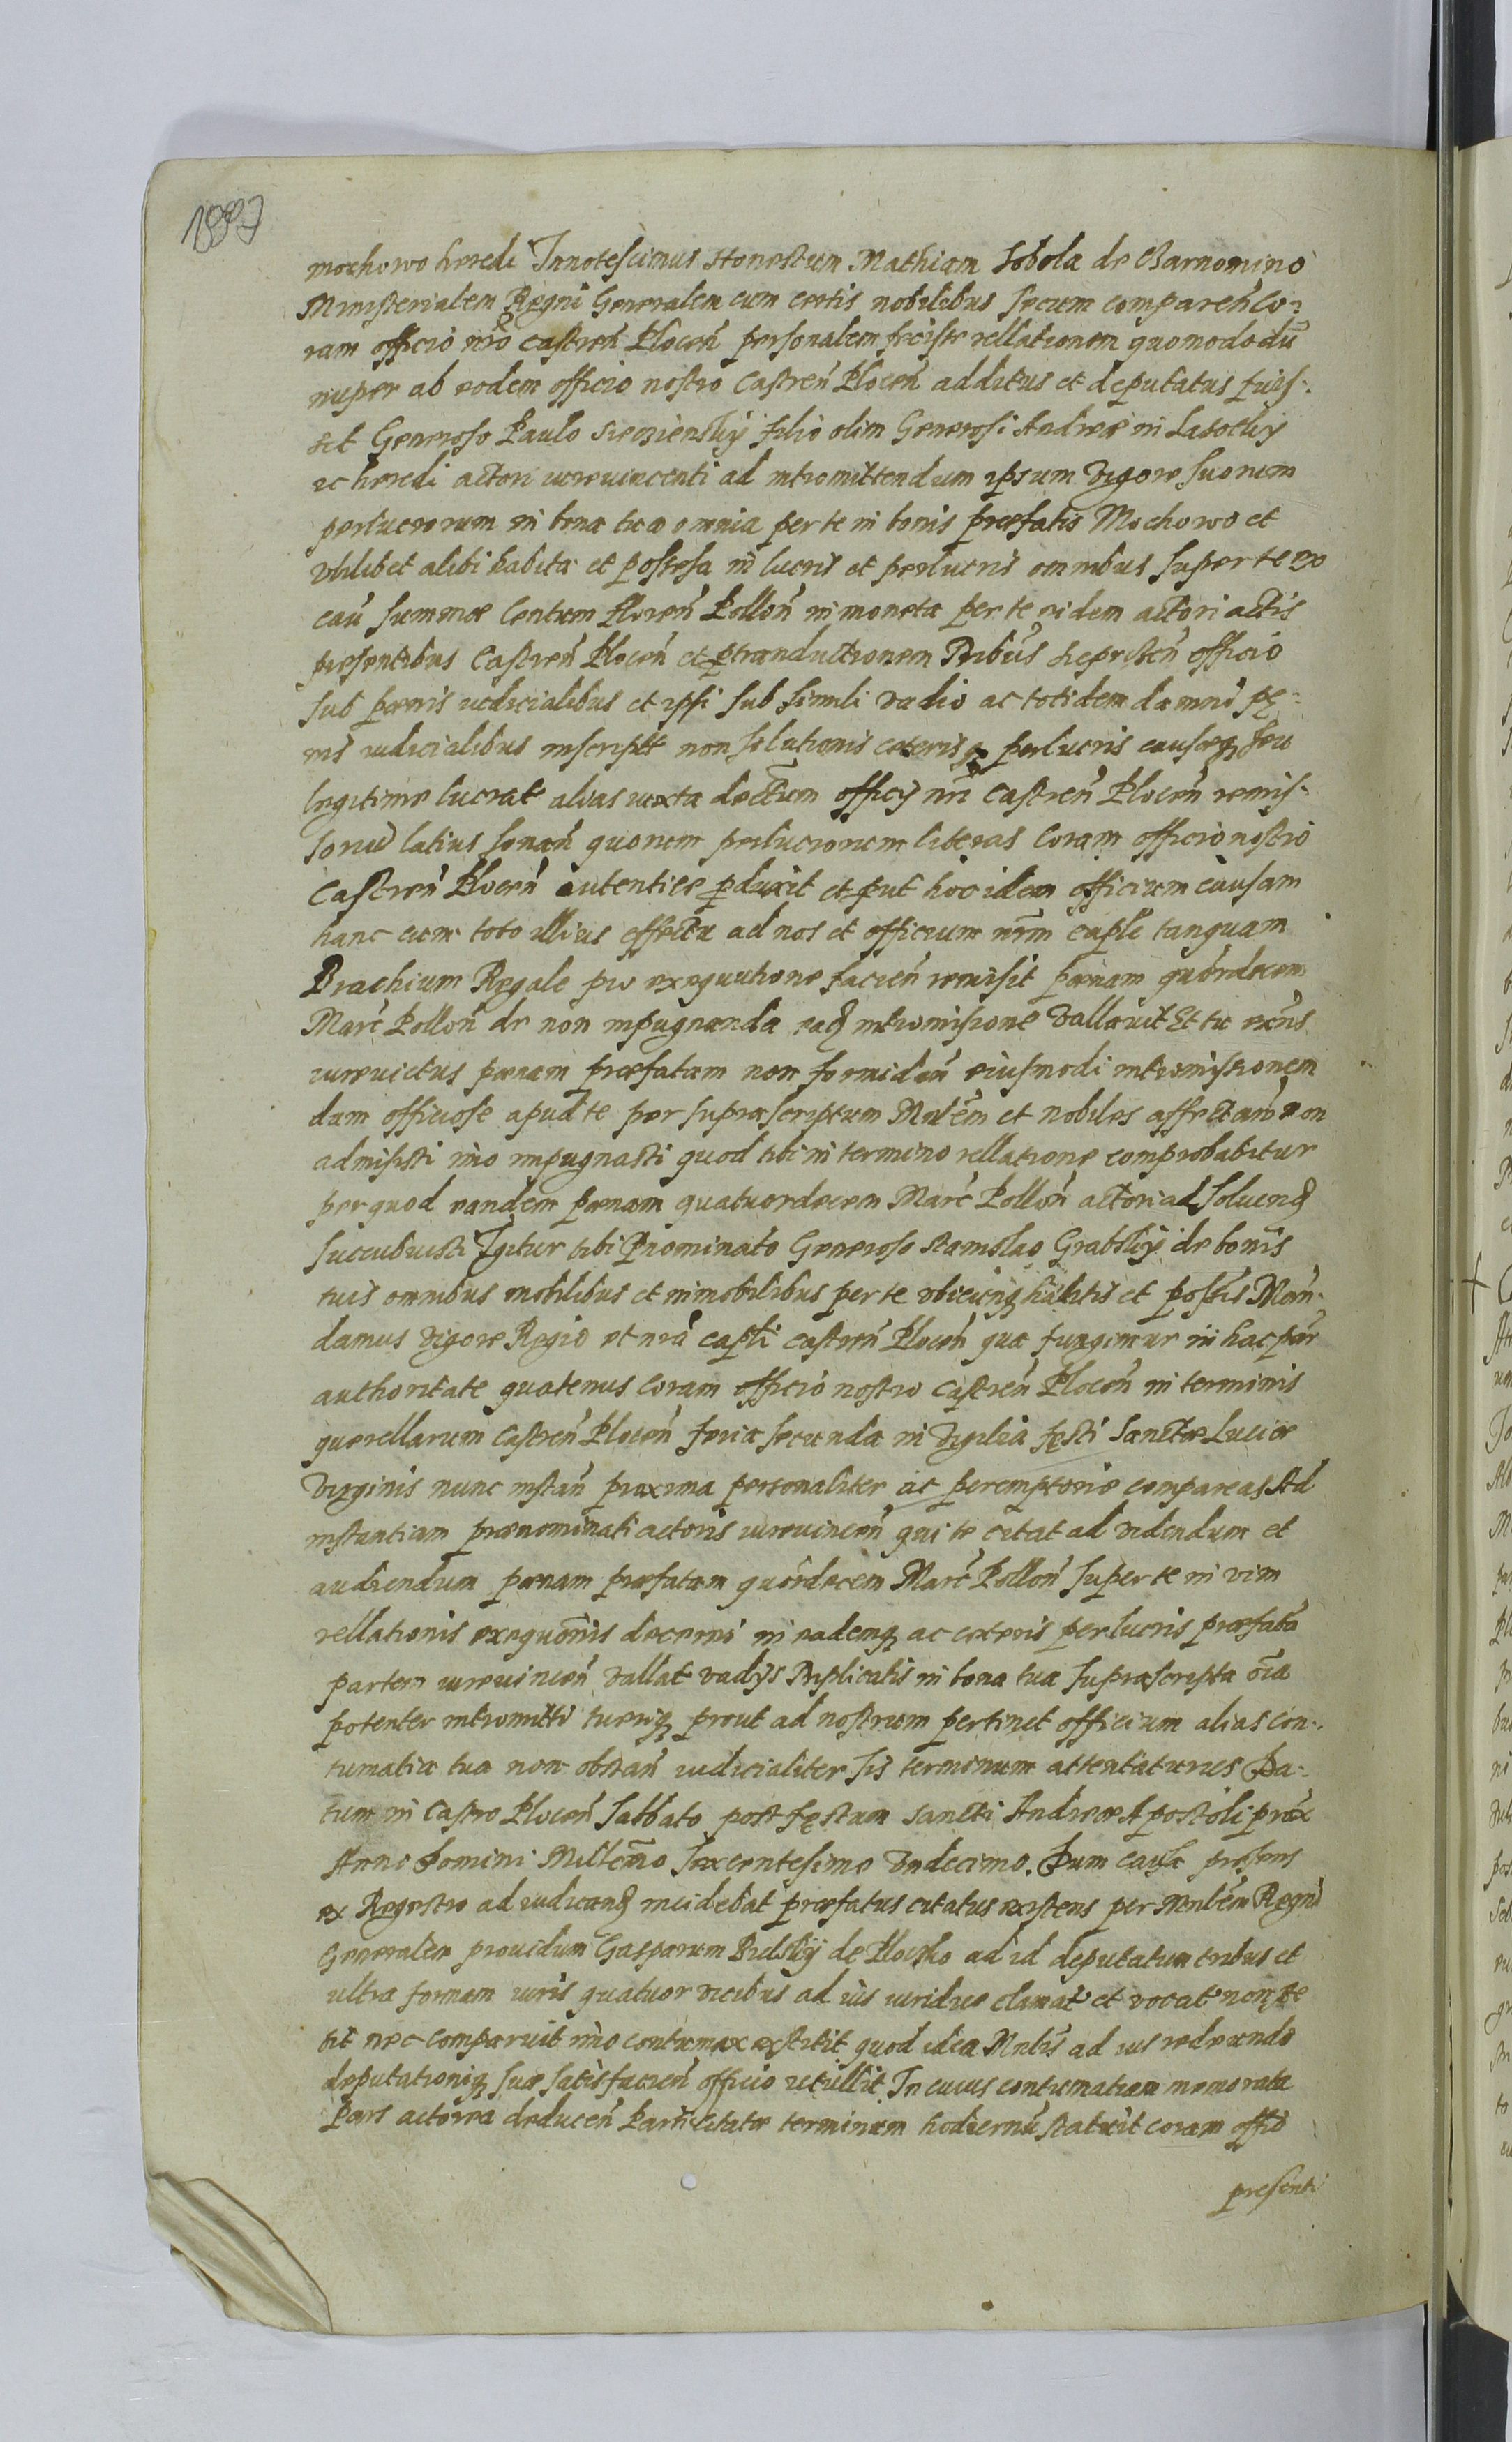 mochowo heredi Innotescimus Honestum Mathiam Sobola de Czarnonino
Ministerialem Regni Generalem cum certis nobilibus secum comparen̄ Co-
ram officio nro̅ castren̄ Plocen̄ personalem fecisse rellationem quomodo dū
nuper ab eodem officio nostro Castren̄ Plocen̄ additus et deputatus fuis-
set Generoso Paulo filio olim Generosi Andreæ in Lasotky
ac heredi actori iurevincenti ad intromittendum ipsum vigore suorum
perlucrorum in bona tua omnia per te in bonis præfatis Mochowo et
vbilibet alibi habita et possessa in lucris et perlucris omnibus super te ex
cau̅ summæ Centum Floren̄ Pollon̄ in moneta per te eidem actori actis
presentibus Castren̄ Plocen̄ officio
sub pœnis iudicialibus et ipsi sub simili vadio ac totidem damni pę-
nis iudicialibus inscriptæ non solutionis ceterisq perlucris causæq seu
legitime lucrat̄ alias iuxta dectum officij nri̅ castren̄ Plocen̄ remis-
sorium latius sonan̄ quorum perlucrorum literas Coram officio nostro
Castren̄ Plocen̄ autentice p̱duxit et p̱ut hoc idem officium causam
hanc cum toto illius effectu ad nos et officium nrm̅ caple tanquam
Brachium Regale pro exequutione facien̄ remisit pœnam quordecem
Marc̄ Pollon̄ de non impugnanda ead intromissione vallavit Et tu
iurevictus pœnam præfatam non formidan̄ eiusmodi intromissionem
dum officiose apud te per suprascriptum Mnlēm et nobiles affectam̄ non
admisisti imo impugnasti quod tibi in termino rellatione comprobabitur
per quod eandem pœnam quatuordecem Marc̄ Pollon̄ actori ad soluend
succubuisti Igitur tibi Pnominato Generoso Stanislao Grabsky de bonis
tuis omnibus mobilibus et immobilibus per te vbicunq habitis et possis Man-
damus vigore Regio et nrā capli castren̄ Plocen̄ qua fungimur in hac pār
authoritate quatenus Coram officio nostro Castren̄ Plocen̄ in terminis
querellarum Castren̄ Plocen̄ feria secunda in vigilia fęsti Sanctæ Luciæ
virginis nunc instan̄ proxima personaliter ac peremptorie compareas Ad
instantiam prænominati actoris iurevincen̄ qui te citat ad videndum et
audiendum pœnam præfatam quordecem Marc̄ Pollon̄ super te in vim
rellationis exequōnis decerni in eademq ac ceteris perlucris præfatā
partem iurevincen̄ vallat vadijs triplicatis in bona tua suprascripta oīa
potenter intromitti tueriq prout ad nostrum pertinet officium alias con-
tumatia tua non obstan̄ iudicialiter sis terminum attentaturus Da-
tum in Castro Plocen̄ Sabbato post fęstum Sancti Andreæ Apostoli prox
Anno Domini Millemo̅ Sexcentesimo Vndecimo. Dum causa præsens
ex Regestro ad iudicand incidebat præfatus citatus existens per Mnlēm Regni
Generalem prouidum Gasparum Bielsky de Plocko ad id deputatum tribus et
ultra formam iuris quatuor vicibus ad ius iuridice clamat̄ et vocat̄ non ste
tit nec comparuit imo contumax exstitit quod idem Mnlis ad ius redeundo
deputationiq suæ satisfacien̄ officio retullit In cuius contumatiam memorata
Pars actorea deducen̄ Parti Citatæ terminum hodiernū statuit coram offio̅
presenti